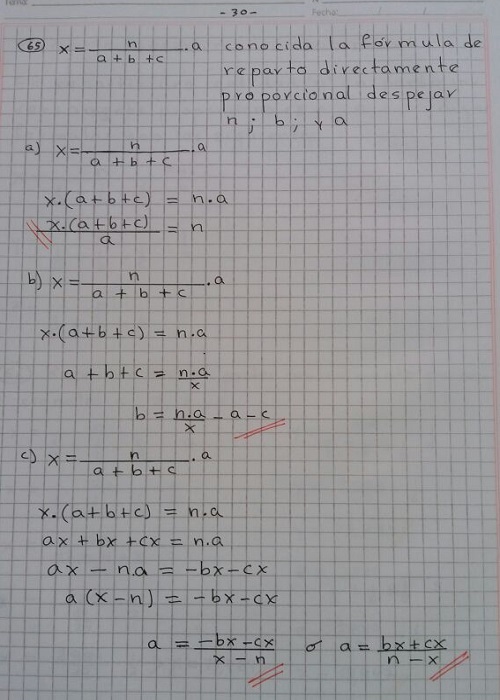 - 30 -
Fecha:
65 x = n/(a + b + c) . a conocida la fórmula de
reparto directamente
proporcional despejar
n ; b ; y a
a) x = n/(a + b + c) . a
x.(a+b+c) = n.a
x.(a+b+c)/a = n
b) x = n/(a + b + c) . a
x.(a+b+c) = n.a
a + b + c = n.a/x
b = n.a/x - a - c
c) x = n/(a + b + c) . a
x.(a+b+c) = n.a
ax + bx + cx = n.a
ax - n.a = -bx - cx
a (x - n) = -bx - cx
a = (-bx - cx)/(x - n) o a = (bx + cx)/(n - x)